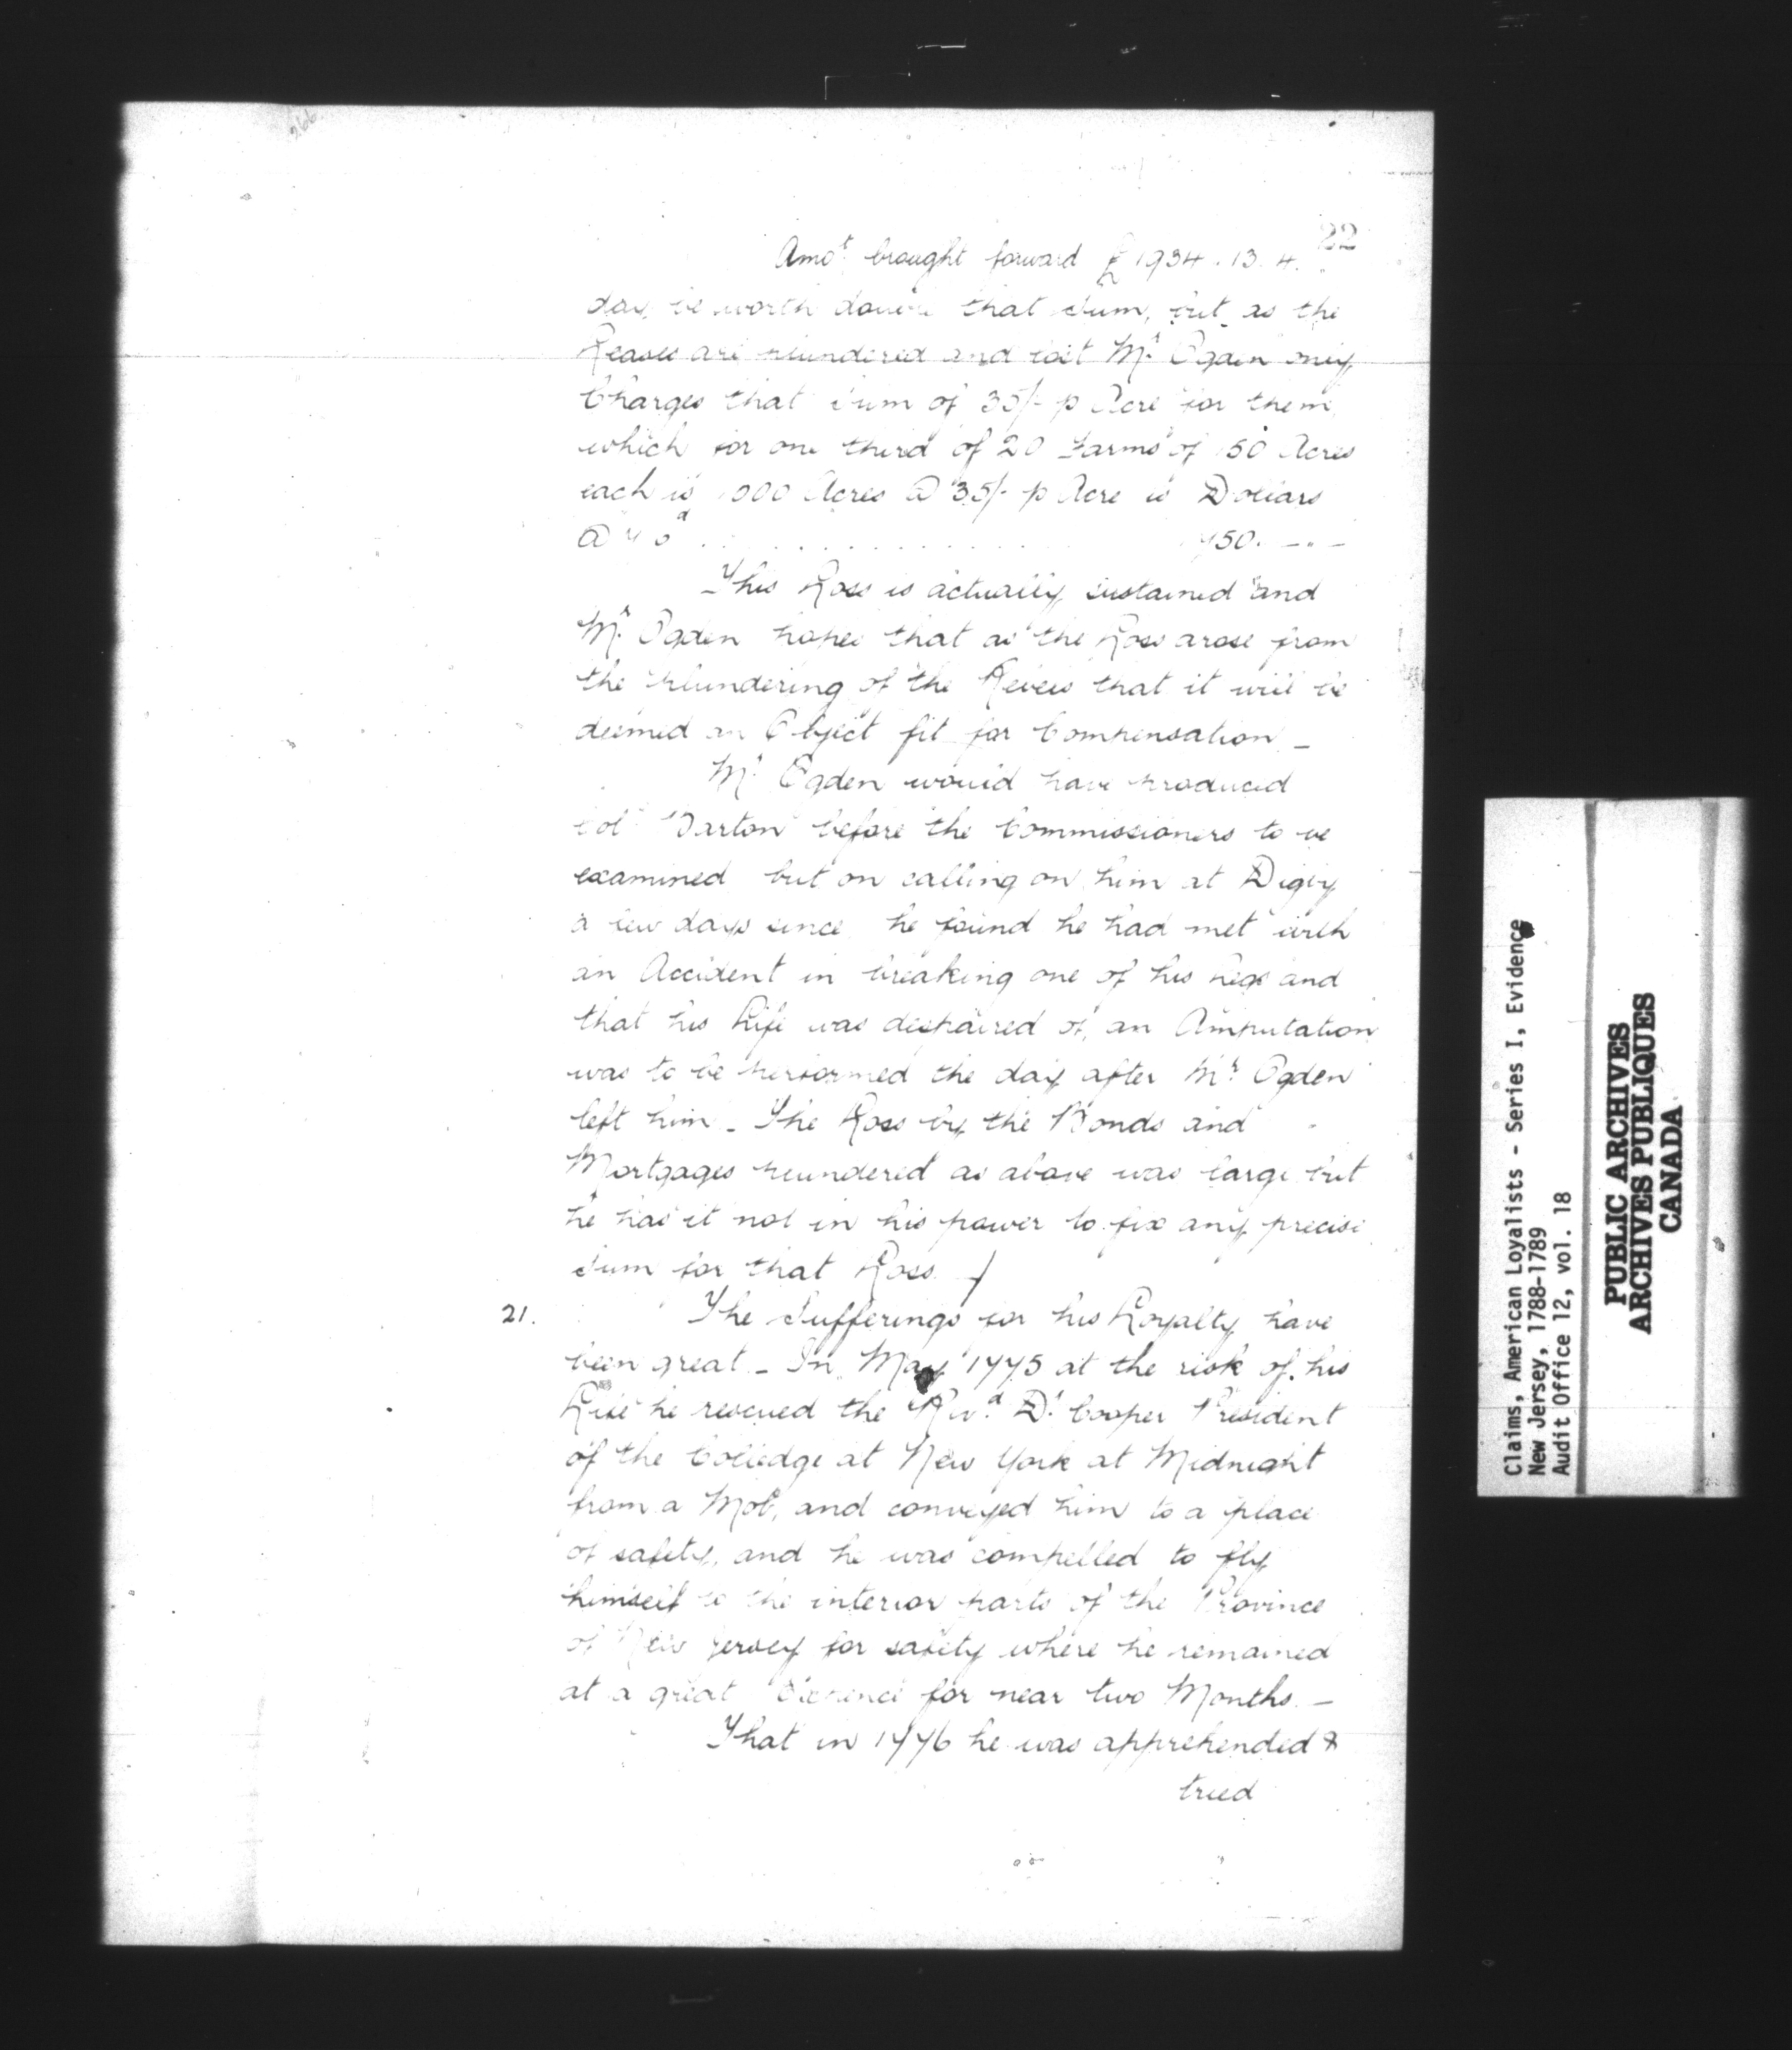 22
Amot brought forward £1934. 13. 4.
day be worth double that Sum, but as the
Leases are plundered and lost Mr Ogden only
Charges that Sum of 35/- p Acre for them
which for one third of 20 Farms of 150 Acres
each is 1000 Acres @ 35/- p Acre is Dollars
@
This Loss is actually sustained and
Mr. Ogden hopes that as the Loss arose from
the plundering of the Rebels that it will be
deemed an Object fit for Compensation –
Mr Ogden would have produced
Col Barton before the Commissioners to be
examined but on calling on him at Digby
a few days since he found he had met with
an Accident in breaking one of his Legs and
that his Life was despaired of, an Amputation
was to be performed the day after Mr Ogden
left him – The Loss by the Bonds and
Mortgages plundered as above was large but
he has it not in his power to fix any precise
Sum for that Loss
21. The Sufferings for his Loyalty have
been great – In May 1775 at the risk of his
Life he rescued the Revd. Dr Cooper President
of the Colledge at New York at Midnight
from a Mob, and conveyed him to a place
of safety, and he was compelled to fly
himself to the interior parts of the Province
of New Jersey for safety where he remained
at a great Expence for near two Months. –
That in 1776 he was apprehended &
tried
Claims, American Loyalists - Series I, Evidence
New Jersey, 1788-1789
Audit Office 12, vol. 18
PUBLIC ARCHIVES
ARCHIVES PUBLIQUES
CANADA